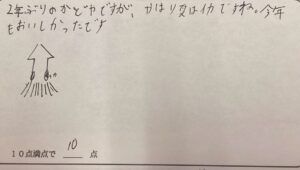 2年ぶりのかどやですが、かはり夏はイカですね。今年
もおいしかったです
10点満点で 10 点